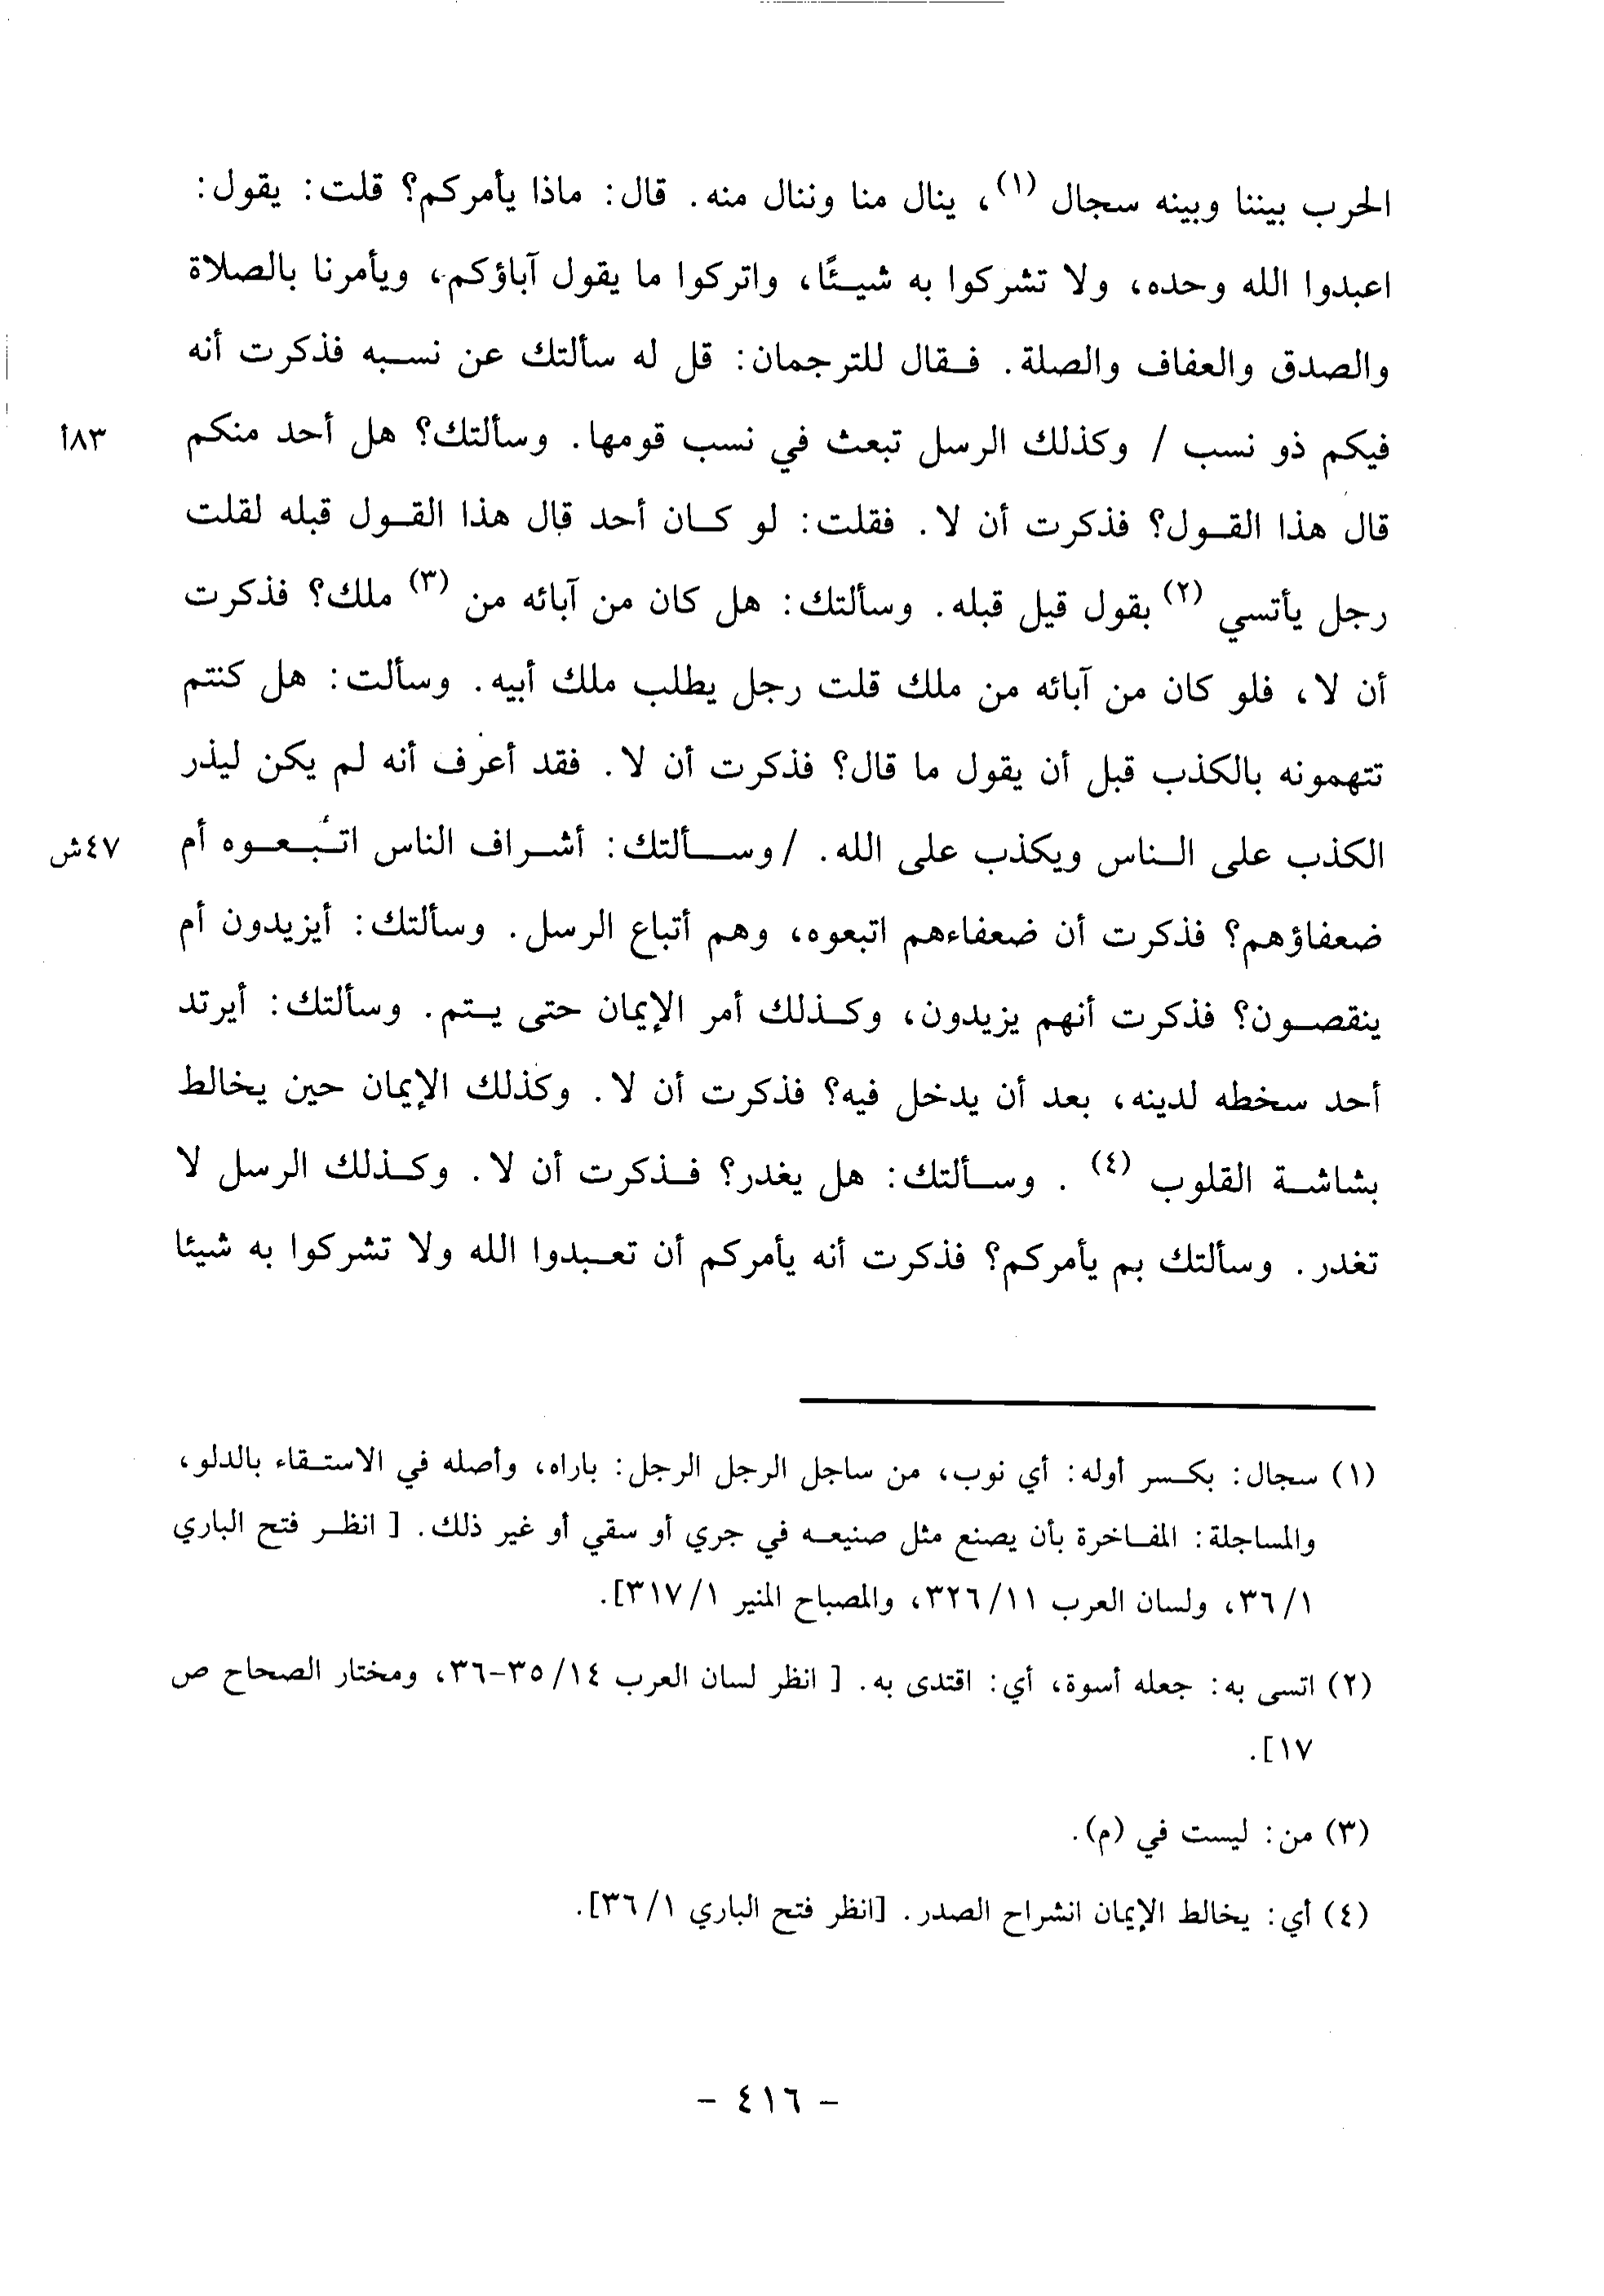 الحرب بيننا وبينه سجال (١)، ينال منا وننال منه. قال: ماذا يأمركم؟ قلت: يقول:
اعبدوا الله وحده، ولا تشركوا به شيئًا، واتركوا ما يقول آباؤكم، ويأمرنا بالصلاة
والصدق والعفاف والصلة. فقال للترجمان: قل له سألتك عن نسبه فذكرت أنه
فيكم ذو نسب / وكذلك الرسل تبعث في نسب قومها. وسألتك؟ هل أحد منكم
٨٣أ
قال هذا القول؟ فذكرت أن لا. فقلت: لو كان أحد قال هذا القول قبله لقلت
رجل يأتسي (٢) بقول قيل قبله. وسألتك: هل كان من آبائه من (٣) ملك؟ فذكرت
أن لا، فلو كان من آبائه من ملك قلت رجل يطلب ملك أبيه. وسألت: هل كنتم
تتهمونه بالكذب قبل أن يقول ما قال؟ فذكرت أن لا. فقد أعرف أنه لم يكن ليذر
الكذب على الناس ويكذب على الله. / وسألتك: أشراف الناس اتبعوه أم
٤٧ش
ضعفاؤهم؟ فذكرت أن ضعفاءهم اتبعوه، وهم أتباع الرسل. وسألتك: أيزيدون أم
ينقصون؟ فذكرت أنهم يزيدون، وكذلك أمر الإيمان حتى يتم. وسألتك: أيرتد
أحد سخطه لدينه، بعد أن يدخل فيه؟ فذكرت أن لا. وكذلك الإيمان حين يخالط
بشاشة القلوب (٤) . وسألتك: هل يغدر؟ فذكرت أن لا. وكذلك الرسل لا
تغدر. وسألتك بم يأمركم؟ فذكرت أنه يأمركم أن تعبدوا الله ولا تشركوا به شيئا
(١) سجال: بكسر أوله: أي نوب، من ساجل الرجل الرجل: باراه، وأصله في الاستقاء بالدلو،
والمساجلة: المفاخرة بأن يصنع مثل صنيعه في جري أو سقي أو غير ذلك. [ انظر فتح الباري
١/ ٣٦، ولسان العرب ١١/ ٣٢٦، والمصباح المنير ١/ ٣١٧].
(٢) اتسى به: جعله أسوة، أي: اقتدى به. [ انظر لسان العرب ١٤/ ٣٥-٣٦، ومختار الصحاح ص
١٧].
(٣) من: ليست في (م).
(٤) أي: يخالط الإيمان انشراح الصدر. [انظر فتح الباري ١/ ٣٦].
- ٤١٦ -